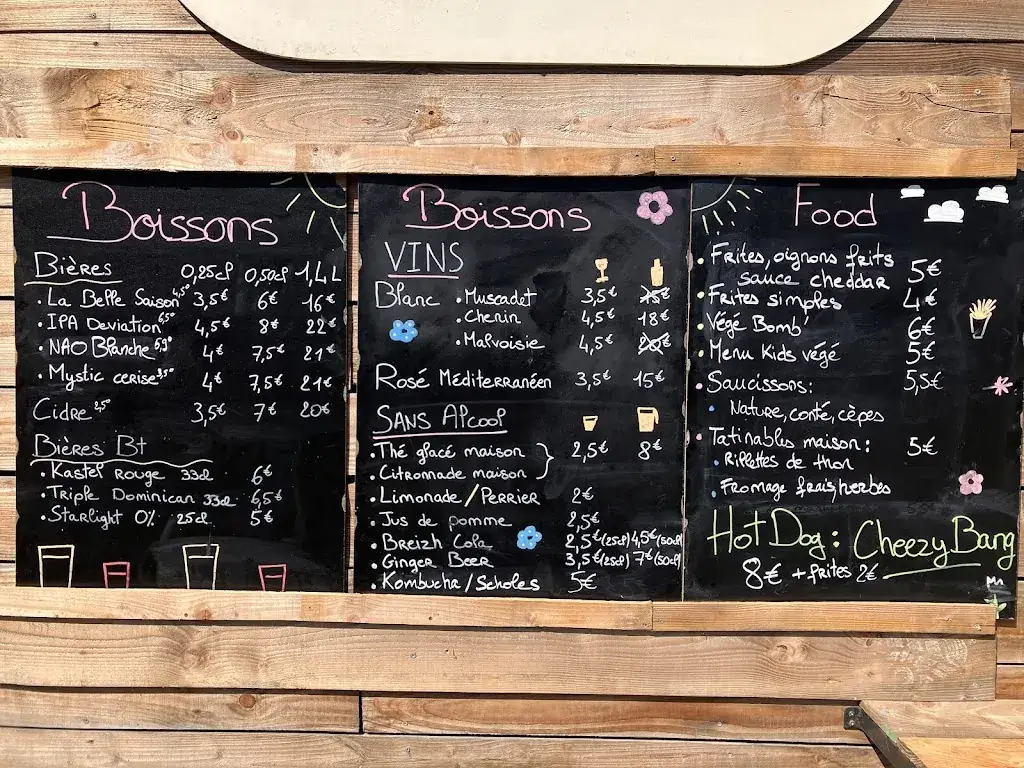 Boissons
Bières 0,25cl 0,50cl 1,4L
• La Belle Saison 4,5° 3,5€ 6€ 16€
• IPA Deviation 6,5° 4,5€ 8€ 22€
• NAO Blanche 4€ 7,5€ 21€
• Mystic cerise 3,5° 4€ 7,5€ 21€
Cidre 2,5° 3,5€ 7€ 20€
Bières Bt
• Kastel Rouge 33cl 6€
• Triple Dominican 33cl 6,5€
• Starlight 0% 25cl 5€
Boissons
VINS
Blanc • Muscadet 3,5€ 15€
• Chenin 4,5€ 18€
• Malvoisie 4,5€ 20€
Rosé Méditerranéen 3,5€ 15€
SANS Alcool
• Thé glacé maison 2,5€ 8€
• Citronnade maison
• Limonade / Perrier 2€
• Jus de pomme 2,5€
• Breizh Cola 2,5€ (25cl) 4,5€ (50cl)
• Ginger Beer 3,5€ (25cl) 7€ (50cl)
• Kombucha / Scholes 5€
Food
• Frites, oignons frits
sauce cheddar 5€
• Frites simples 4€
• Végé Bomb' 6€
• Menu Kids végé 5€
• Saucissons: 5,5€
• Nature, conté, cèpes
• Tatinables maison: 5€
• Rillettes de thon
• Fromage frais/herbes
Hot Dog: Cheezy Bang
8€ + frites 2€